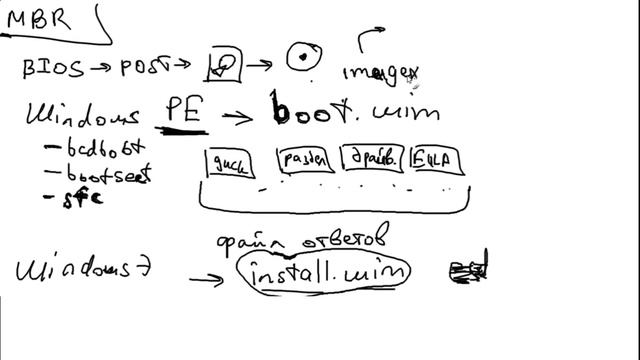 MBR
BIOS → POST → → imagex
Windows PE → boot.wim
- bcdboot
- bootsect
- sfc
диск раздел драйв. EULA
файл ответов
Windows 7 → install.wim